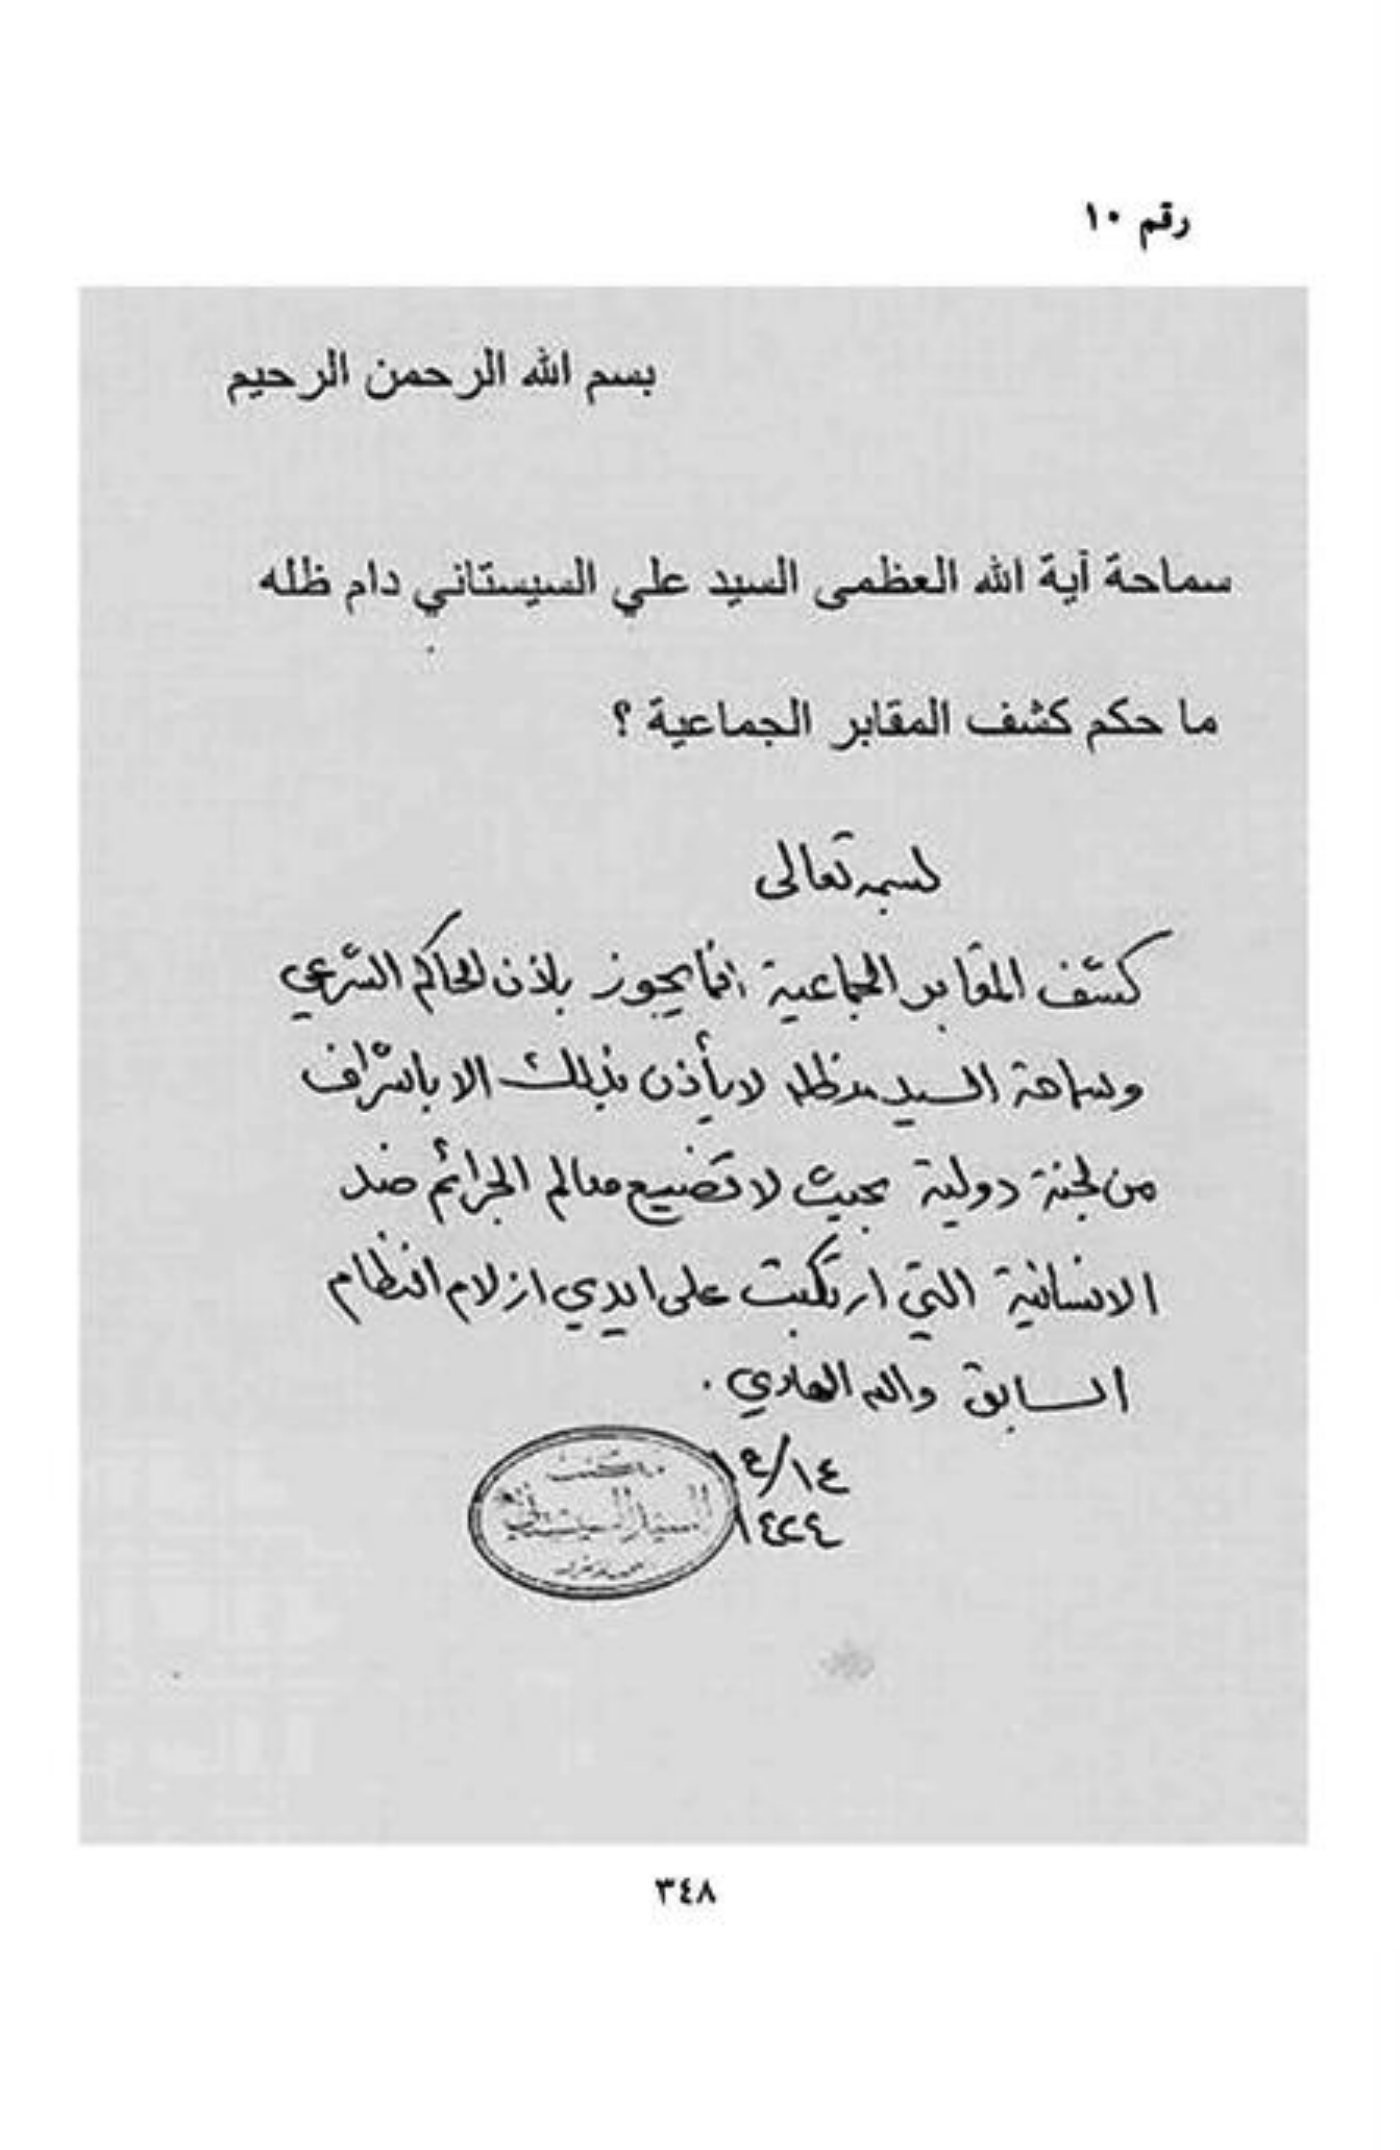 رقم ١٠
بسم الله الرحمن الرحيم
سماحة آية الله العظمى السيد علي السيستاني دام ظله
ما حكم كشف المقابر الجماعية ؟
بسمه تعالى
كشف المقابر الجماعية انما يجوز باذن الحاكم الشرعي
وسماحة السيد مد ظله لا يأذن بذلك الا باشراف
من لجنة دولية بحيث لا تضيع معالم الجرائم ضد
الانسانية التي ارتكبت على ايدي ازلام النظام
السابق والله الهادي .
١٤/ع١
١٤٢٤
مكتب
السيد السيستاني
٣٤٨